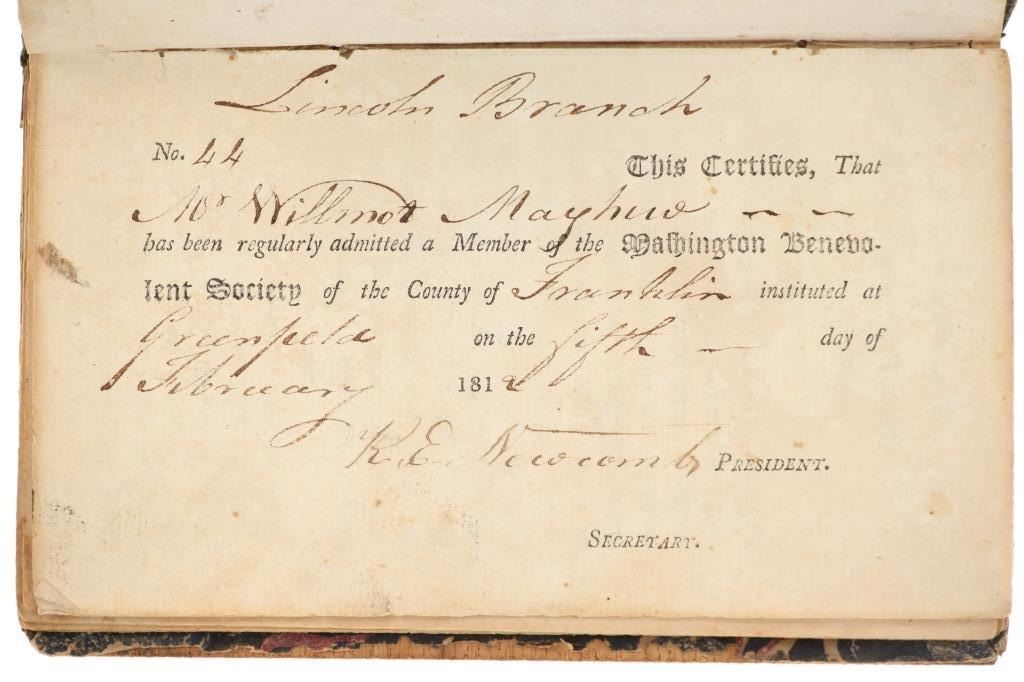 Lincoln Branch
No. 44 This Certifies, That
Mr Willmot Mayhew
has been regularly admitted a Member of the Washington Benevo-
lent Society of the County of Franklin instituted at
Greenfield on the fifth day of
February 1812
R. E. Newcomb PRESIDENT.
SECRETARY.